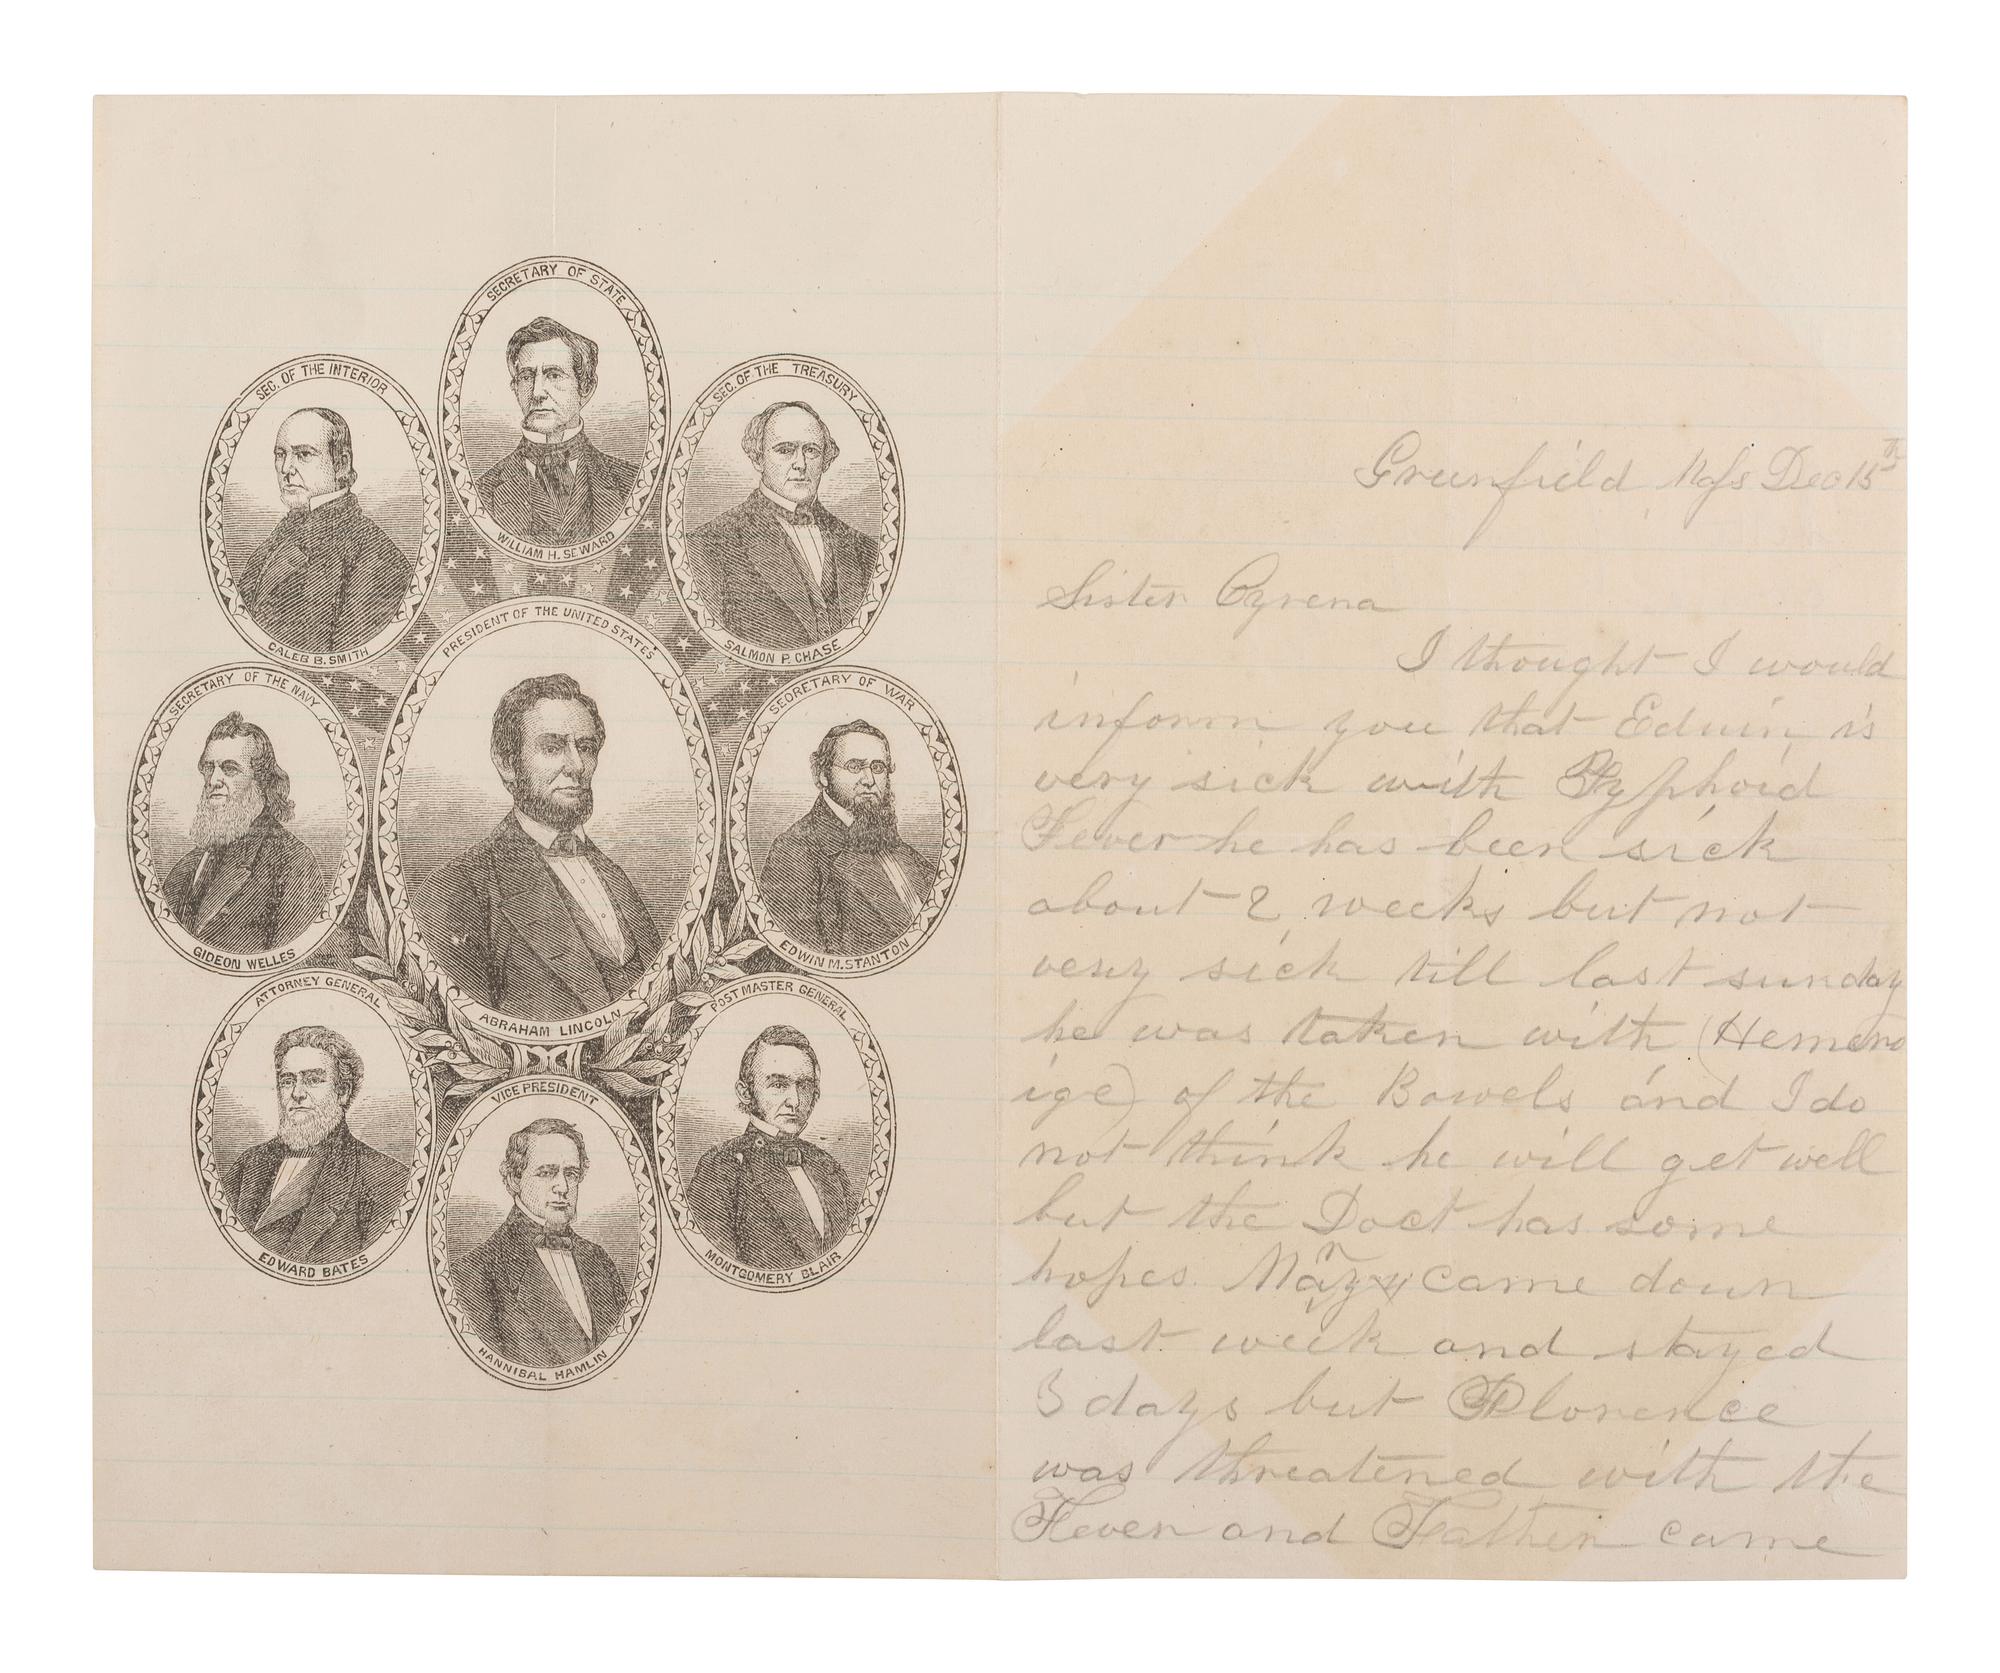 SECRETARY OF STATE
WILLIAM H. SEWARD
SEC. OF THE INTERIOR
CALEB B. SMITH
SEC. OF THE TREASURY
SALMON P. CHASE
PRESIDENT OF THE UNITED STATES
ABRAHAM LINCOLN
SECRETARY OF THE NAVY
GIDEON WELLES
SECRETARY OF WAR
EDWIN M. STANTON
ATTORNEY GENERAL
EDWARD BATES
POST MASTER GENERAL
MONTGOMERY BLAIR
VICE PRESIDENT
HANNIBAL HAMLIN
Greenfield Mass Dec 15th
Sister Cyrena
I thought I would
inform you that Edwin is
very sick with Typhoid
Fever he has been sick
about 2 weeks but not
very sick till last sunday
he was taken with (Hemero
ige) of the Bowels and I do
not think he will get well
but the Doct has some
hopes Mary came down
last week and stayed
3 days but Florence
was threatened with the
Fever and Father came